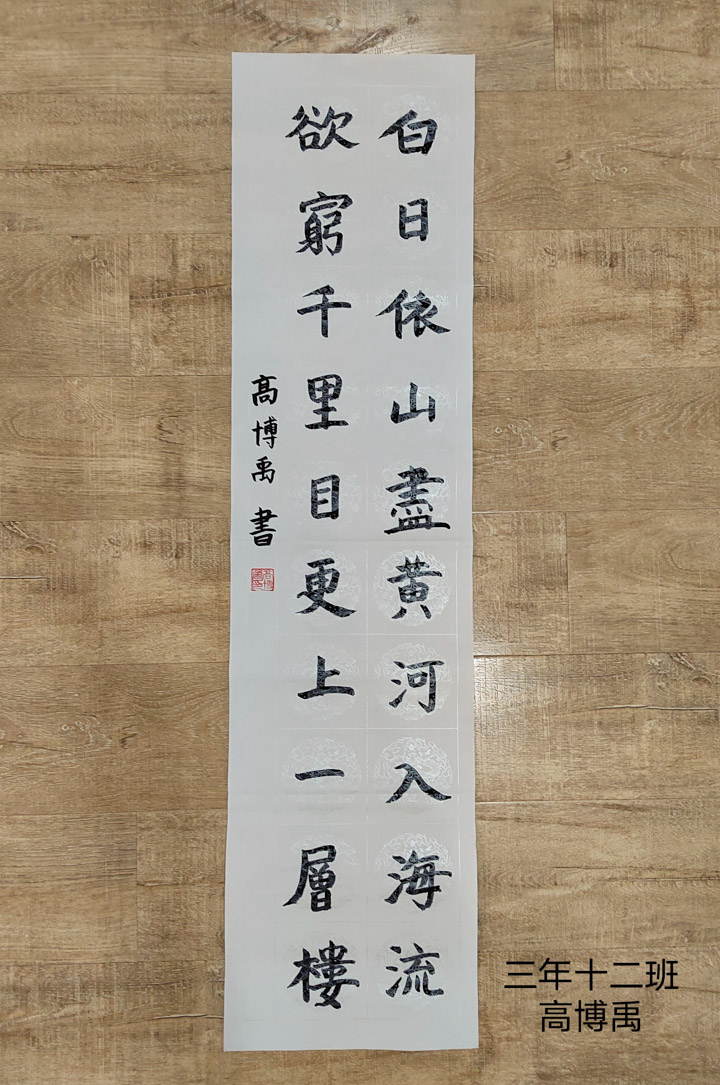 白日依山盡黄河入海流
欲窮千里目更上一層樓
高博禹書
三年十二班
高博禹